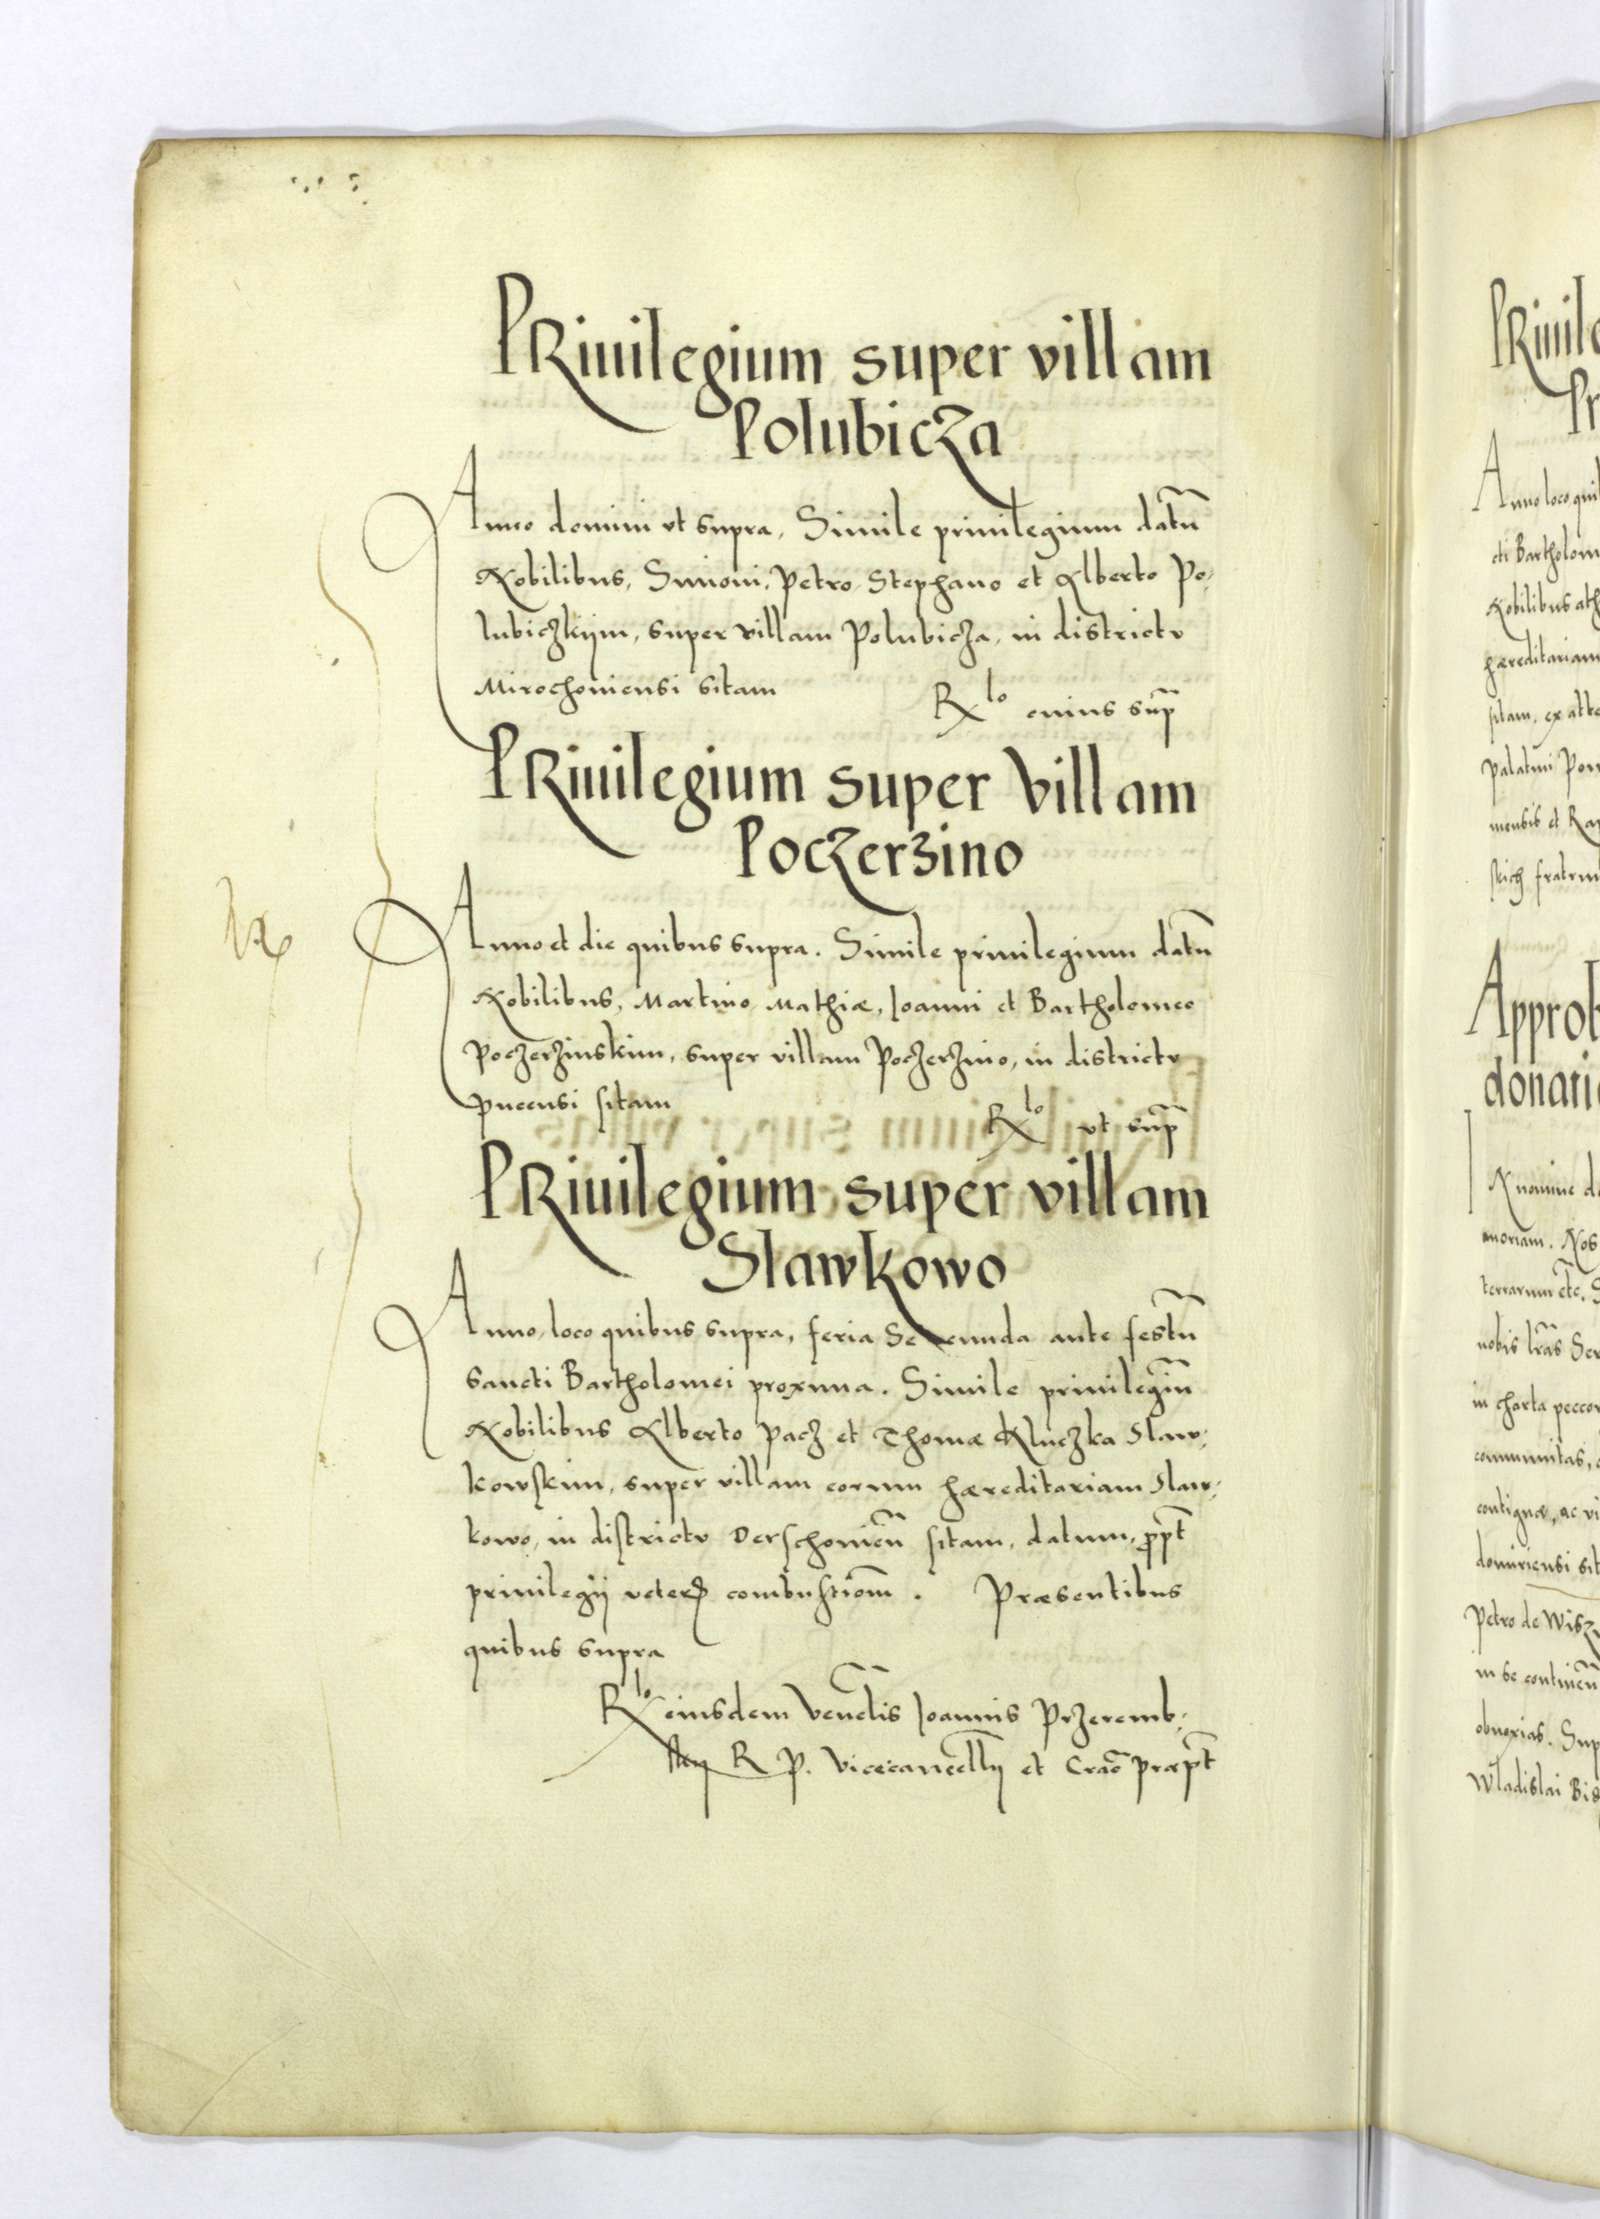 PRiuilegium super villam
Polubicza
Anno domini vt supra, Simile priuilegium datũ
Nobilibus, Simoni, Petro, Stephano et Alberto Po-
lubiczkijm, super villam Polubicza, in districtv
Mirochoniensi sitam
Rlo cuius sup̃
PRiuilegium super Villam
Poczerzino
Anno et die quibus supra. Simile priuilegium datũ
Nobilibus, Martino, Mathiæ, Ioanni et Bartholomeo
Poczerzinskim, super villam Poczerzino, in districtv
pucensi sitam
Rlo vt sup̃
PRiuilegium super villam
Slawkowo
Anno, loco quibus supra, feria Secunda ante festũ
Sancti Bartholomei proxima. Simile priuilegiũ
Nobilibus Alberto Pacz et Thomæ Kluczka Slaw-
kowskim, super villam eorum hæreditariam Slaw-
kowo, in districtv Derschonieñ sitam, datum, ppt̃
priuilegij veteris combustiom̃. Præsentibus
quibus supra
Rlo eiusdem Veñelis Ioannis Przeremb-
skij R P. Vicecancellij et Crac̃ præpt̃
PRiuile
Pr
Anno loco qui
cti Bartholom
Nobilibus ath
hæreditariam
sitam, ex atte
Palatini Pom
mensis et Ra
skich fratrm
Approb
donatio
N nomine do
moriam. Nos
terrarum etc̃. S
nobis lr̃as Ser
in charta peccor
communitas,
contiguæ, ac vi
domiriensi sit
Petro de Wisz
in se continen
obnoxias. Sup
Wladislai Bis